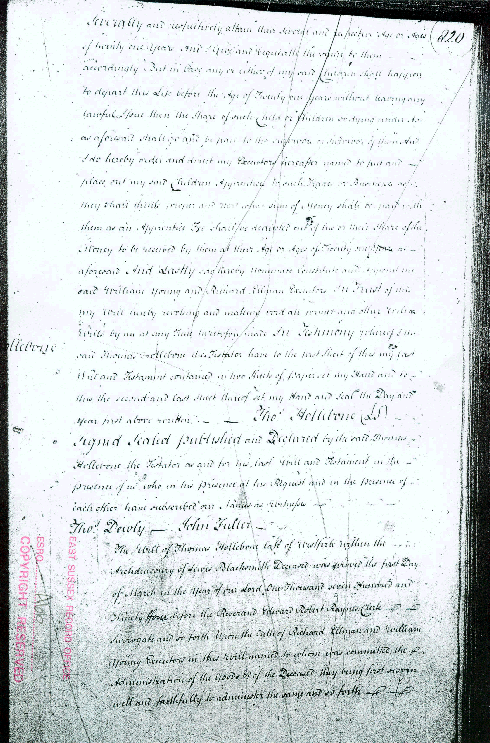 Severally and respectively attain their several and respective Age or Ages
of twenty one Years And I Give and bequeath the same to them
accordingly But in Case any or either of my said Children shall happen
to depart this Life before the Age of Twenty one Years without leaving any
lawful Issue then the Share of such Child or Children so dying under Age
as aforesaid shall go and be paid to the survivors or survivor of them And
I do hereby order and direct my Executors hereafter named to put and
place out my said Children Apprentice to such Trade or Business as
they shall think proper and that what sum of Money shall be paid with
them as an Apprentice Fee shall be deducted out of his or their Share of the
Money to be received by them at their Age or Ages of Twenty one Years as
aforesaid And Lastly I do hereby nominate constitute and appoint my
said William Young and Richard Ellman Executors In Trust of this
my Will hereby revoking and making void all former and other Will or
Wills by me at any Time heretofore made In Testimony whereof I the
said Thomas Hollebone the Testator have to the first Sheet of this my last
Will and Testament contained in two Sheets of Paper set my Hand and to
this the second and last Sheet thereof set my Hand and Seal the Day and
Year first above written
Thos. Hollebone (LS)
Signed Sealed published and Declared by the said Thomas
Hollebone the Testator as and for his last Will and Testament in the
presence of us who in his presence at his Request and in the presence of
each other have subscribed our Names as witnesses
Thos. Dewly John Fuller
The Will of Thomas Hollebone late of Westfirle within the
Archdeaconry of Lewes Blacksmith Deceased was proved the first Day
of March in the Year of our Lord One Thousand seven Hundred and
Ninety before the Reverend Edward Robert Raynes Clerk
Surrogate and so forth Upon the Oaths of Richard Ellman and William
Young Executors in this Will named to whom was committed the
Administration of the Goods &c of the Deceased they being first sworn
well and faithfully to administer the same and so forth
820
Hollebone
EAST SUSSEX RECORD OFFICE
ESRO
COPYRIGHT RESERVED